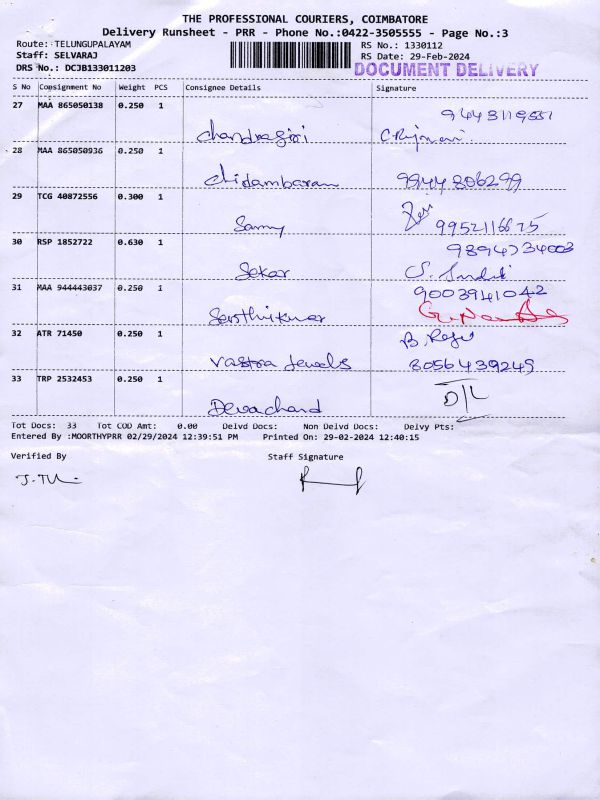 THE PROFESSIONAL COURIERS, COIMBATORE
Delivery Runsheet - PRR - Phone No.:0422-3505555 - Page No.:3
Route: TELUNGUPALAYAM RS No.: 1330112
Staff: SELVARAJ RS Date: 29-Feb-2024
DRS No.: DCJB133011203 DOCUMENT DELIVERY
S No Consignment No Weight PCS Consignee Details Signature
27 MAA 865050138 0.250 1
Chandragiri
28 MAA 865050936 0.250 1
Chidambaram 9944806299
29 TCG 40872556 0.300 1
Samy
30 RSP 1852722 0.630 1
Sekar
31 MAA 944443037 0.250 1 9003941042
32 ATR 71450 0.250 1
Vastra Jewels 8056439249
33 TRP 2532453 0.250 1
Devachand D/L
Tot Docs: 33 Tot COD Amt: 0.00 Delvd Docs: Non Delvd Docs: Delvy Pts:
Entered By :MOORTHYPRR 02/29/2024 12:39:51 PM Printed On: 29-02-2024 12:40:15
Verified By Staff Signature